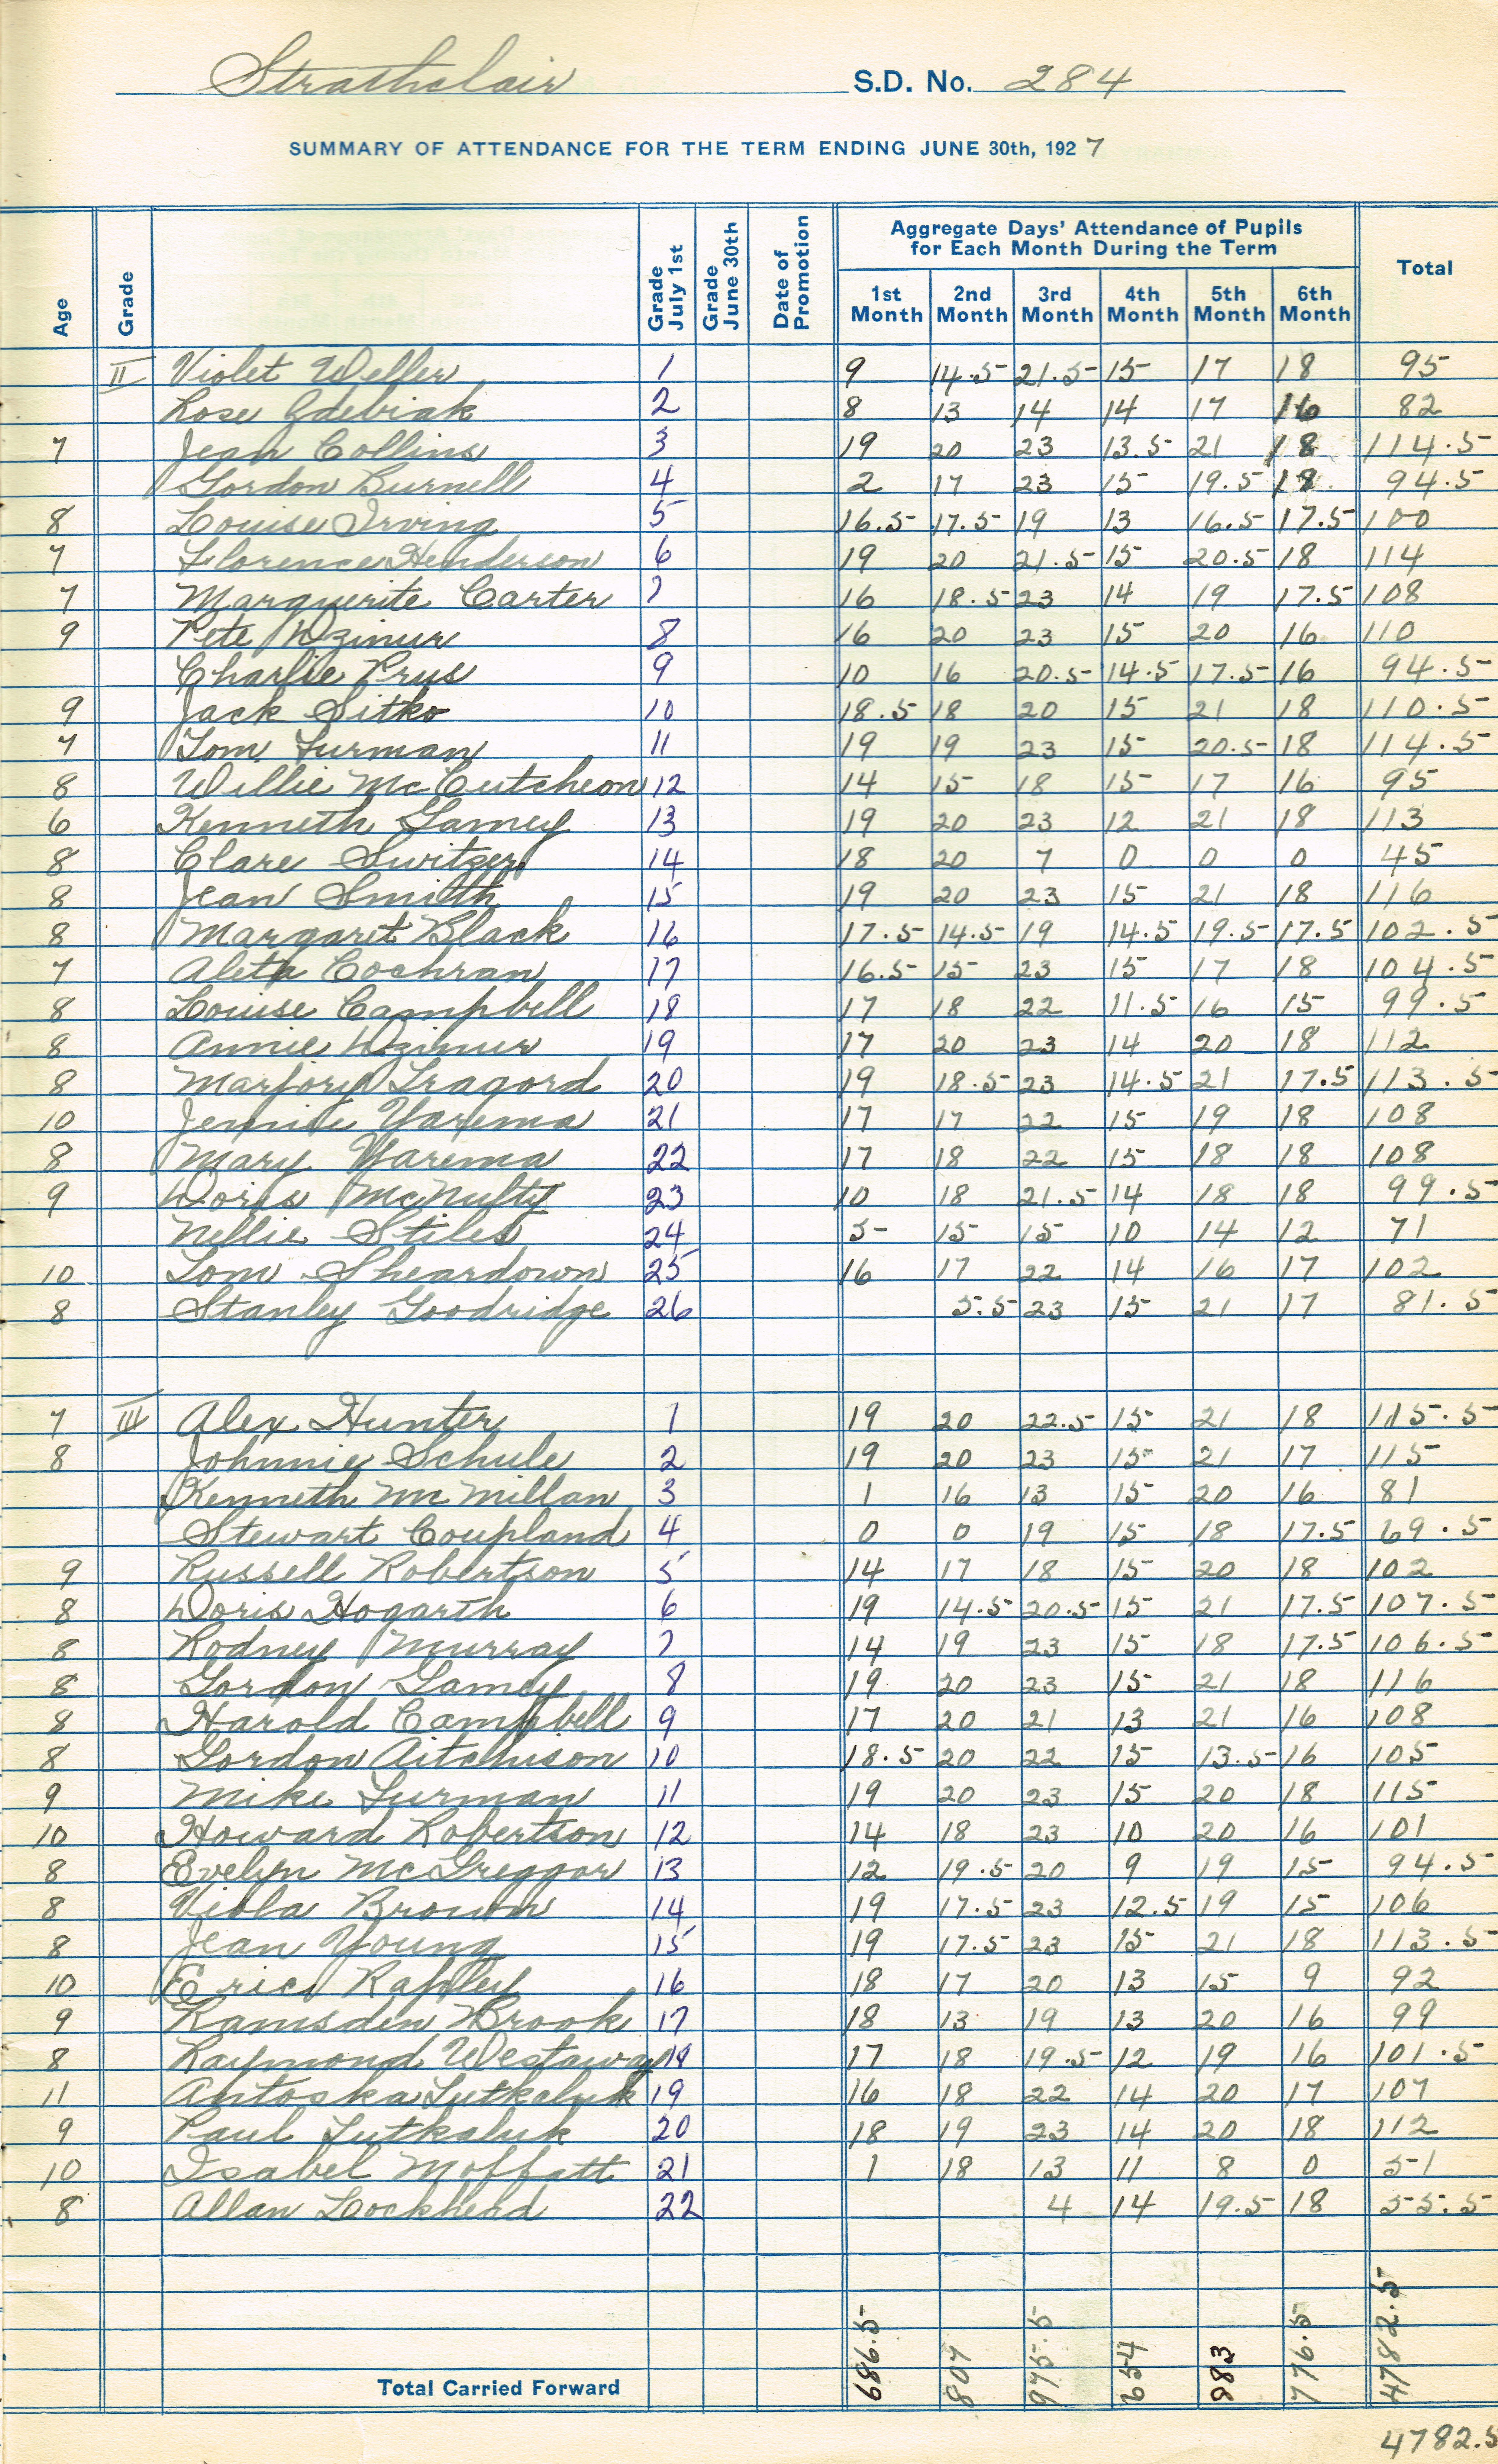 Strathclair S.D. No. 284
SUMMARY OF ATTENDANCE FOR THE TERM ENDING JUNE 30th, 1927
Age Grade Grade July 1st Grade June 30th Date of Promotion Aggregate Days' Attendance of Pupils for Each Month During the Term Total
1st Month 2nd Month 3rd Month 4th Month 5th Month 6th Month
II Violet Weller 1 9 14.5 21.5 15 17 18 95
Rose Zdebiak 2 8 13 14 14 17 16 82
7 Jean Collins 3 19 20 23 13.5 21 18 114.5
Gordon Burnell 4 2 17 23 15 19.5 18 94.5
8 Louise Irving 5 16.5 17.5 19 13 16.5 17.5 100
7 Florence Henderson 6 19 20 21.5 15 20.5 18 114
7 Marguerite Carter 7 16 18.5 23 14 19 17.5 108
9 Pete Dzimur 8 16 20 23 15 20 16 110
Charlie Prus 9 10 16 20.5 14.5 17.5 16 94.5
9 Jack Sitko 10 18.5 18 20 15 21 18 110.5
7 Tom Furman 11 19 19 23 15 20.5 18 114.5
8 Willie McCutcheon 12 14 15 18 15 17 16 95
6 Kenneth Gamey 13 19 20 23 12 21 18 113
8 Clare Switzer 14 18 20 7 0 0 0 45
8 Jean Smith 15 19 20 23 15 21 18 116
8 Margaret Black 16 17.5 14.5 19 14.5 19.5 17.5 102.5
7 Aleta Cochran 17 16.5 15 23 15 17 18 104.5
8 Louise Campbell 18 17 18 22 11.5 16 15 99.5
8 Annie Dzimur 19 17 20 23 14 20 18 112
8 Marjory Tragord 20 19 18.5 23 14.5 21 17.5 113.5
10 Jennie Yarema 21 17 17 22 15 19 18 108
8 Mary Yarema 22 17 18 22 15 18 18 108
9 Doris McNulty 23 10 18 21.5 14 18 18 99.5
Nellie Stiles 24 5 15 15 10 14 12 71
10 Tom Sheardown 25 16 17 22 14 16 17 102
8 Stanley Goodridge 26 5.5 23 15 21 17 81.5
7 III Alex Hunter 1 19 20 22.5 15 21 18 115.5
8 Johnnie Schule 2 19 20 23 15 21 17 115
Kenneth McMillan 3 1 16 13 15 20 16 81
Stewart Coupland 4 0 0 19 15 18 17.5 69.5
9 Russell Robertson 5 14 17 18 15 20 18 102
8 Doris Hogarth 6 19 14.5 20.5 15 21 17.5 107.5
8 Rodney Murray 7 14 19 23 15 18 17.5 106.5
8 Gordon Gamey 8 19 20 23 15 21 18 116
8 Harold Campbell 9 17 20 21 13 21 16 108
8 Gordon Aitchison 10 18.5 20 22 15 13.5 16 105
9 Mike Furman 11 19 20 23 15 20 18 115
10 Howard Robertson 12 14 18 23 10 20 16 101
8 Evelyn McGreggor 13 12 19.5 20 9 19 15 94.5
8 Viola Brown 14 19 17.5 23 12.5 19 15 106
8 Jean Young 15 19 17.5 23 15 21 18 113.5
10 Eric Rapley 16 18 17 20 13 15 9 92
9 Ramsden Brook 17 18 13 19 13 20 16 99
8 Raymond Westaway 18 17 18 19.5 12 19 16 101.5
11 Antoska Lutkaluk 19 16 18 22 14 20 17 107
9 Paul Lutkaluk 20 18 19 23 14 20 18 112
10 Isabel Moffatt 21 1 18 13 11 8 0 51
8 Allan Lockhead 22 4 14 19.5 18 55.5
Total Carried Forward 686.5 807 975.5 654 883 776.5 4782.5
4782.5